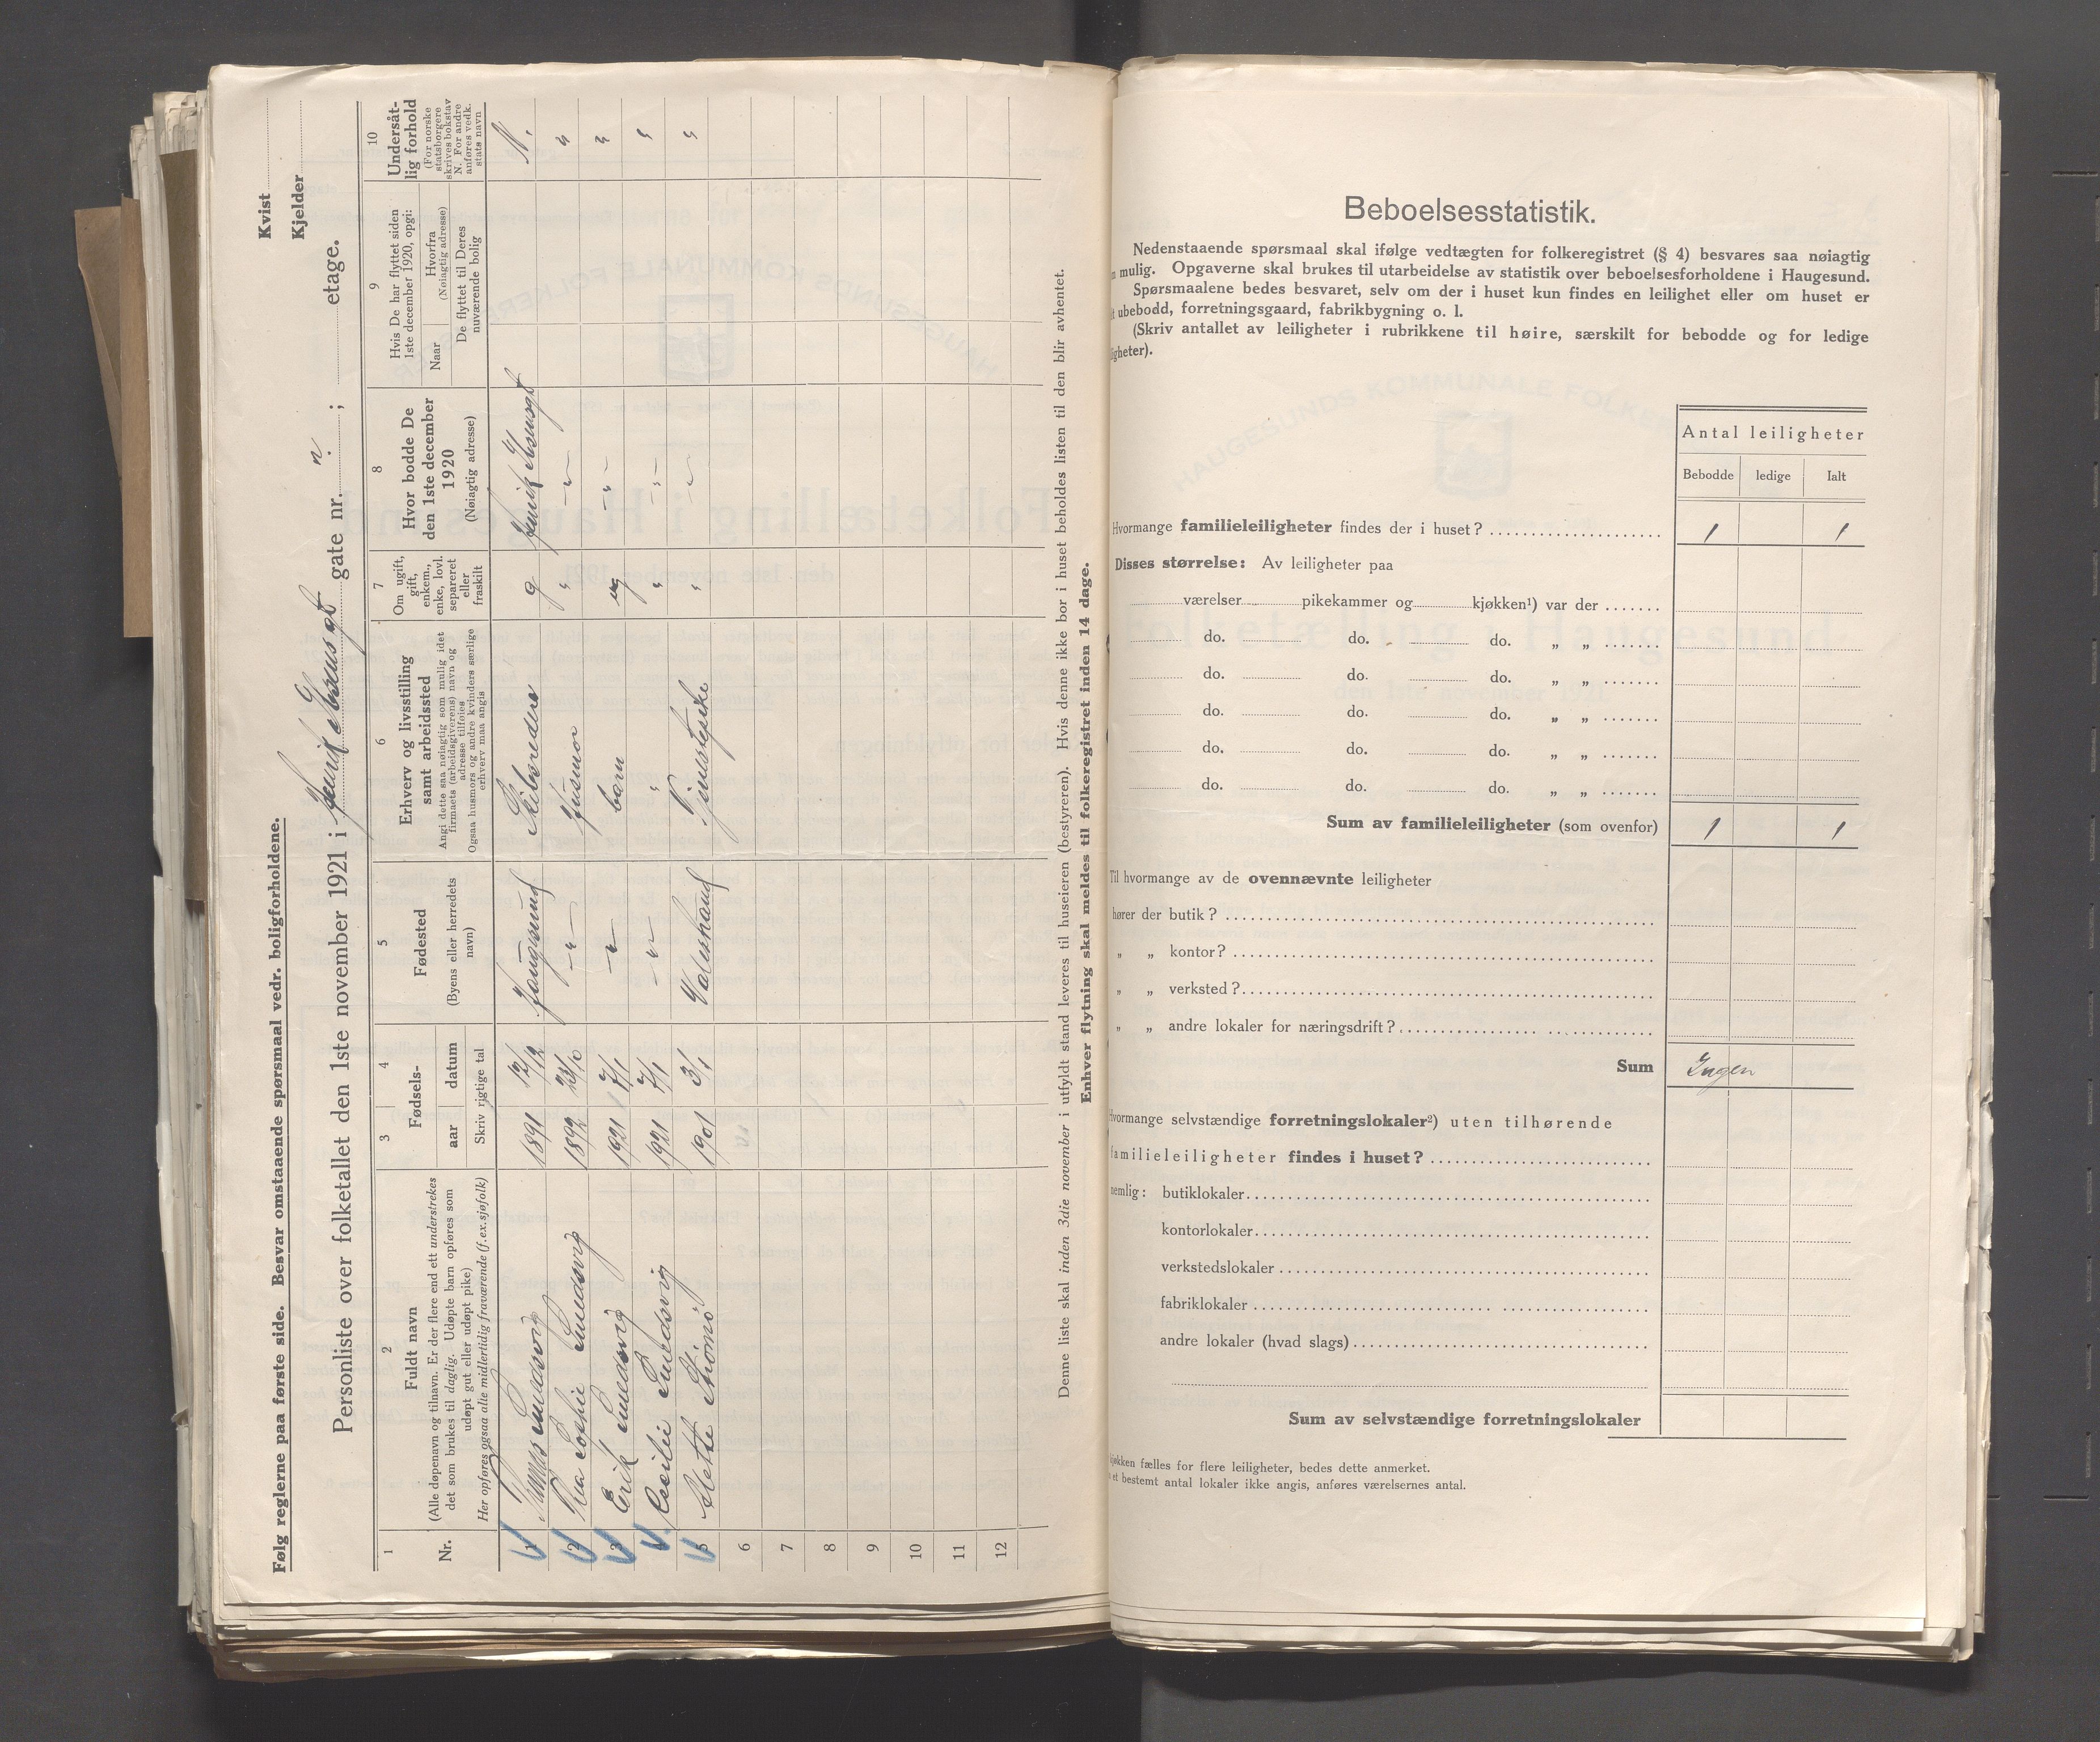 Følg reglerne paa første side. Besvar omstaaende spørsmaal vedr. boligforholdene.
Kvist
Kjelder
Personliste over folketallet den 1ste november 1921 i Henrik Ibsensgt gate nr. ; etage.
1 2 3 4 5 6 7 8 9 10
Nr.
Fuldt navn
(Alle døpenavn og tilnavn. Er der flere end ett understrekes
det som brukes til daglig. Udøpte barn opføres som
udøpt gut eller udøpt pike)
Her opføres ogsaa alle midlertidig fraværende (f.ex.sjøfolk)
Fødsels-
aar datum
Skriv rigtige tal
Fødested
(Byens eller herredets
navn)
Erhverv og livsstilling
samt arbeidssted
Angi dette saa nøiagtig som mulig idet
firmaets (arbeidsgiverens) navn og
adresse tilføies
Ogsaa husmors og andre kvinders særlige
erhverv maa angis
Om ugift,
gift,
enkem.,
enke, lovl.
separeret
eller
fraskilt
Hvor bodde De
den 1ste december
1920
(Nøiagtig adresse)
Hvis De har flyttet siden
1ste december 1920, opgi:
Naar
Hvorfra
(Nøiagtig adresse)
De flyttet til Deres
nuværende bolig
Undersåt-
lig forhold
(For norske
statsborgere
skrives bokstav
N. For andre
anføres vedk.
stats navn
1 Smedsvig 1891 12/12 Haugesund Skibsreder g Henrik Ibsensgt N.
2 Thea Sophie Smedsvig 1892 23/10 -"- Husmor " -"- "
3 Erik Smedsvig 1921 7/1 -"- barn ug -"- "
4 Cecilie Smedsvig 1921 7/1 -"- " " -"- "
5 Mette 1901 3/1 Tjenestepike " -"- "
6
7
8
9
10
11
12
Denne liste skal inden 3die november i utfyldt stand leveres til huseieren (bestyreren). Hvis denne ikke bor i huset beholdes listen til den blir avhentet.
Enhver flytning skal meldes til folkeregistret inden 14 dage.
Beboelsesstatistik.
Nedenstaaende spørsmaal skal ifølge vedtægten for folkeregistret (§ 4) besvares saa nøiagtig
mulig. Opgaverne skal brukes til utarbeidelse av statistik over beboelsesforholdene i Haugesund.
Spørsmaalene bedes besvaret, selv om der i huset kun findes en leilighet eller om huset er
t ubebodd, forretningsgaard, fabrikbygning o. l.
(Skriv antallet av leiligheter i rubrikkene til høire, særskilt for bebodde og for ledige
igheter).
Antal leiligheter
Bebodde ledige Ialt
Hvormange familieleiligheter findes der i huset? 1 1
Disses størrelse: Av leiligheter paa
værelser pikekammer og kjøkken¹) var der
do. do. do. „ „
do. do. do. „ „
do. do. do. „ „
do. do. do. „ „
do. do. do. „ „
Sum av familieleiligheter (som ovenfor) 1 1
Til hvormange av de ovennævnte leiligheter
hører der butik?
„ „ kontor?
„ „ verksted?
„ „ andre lokaler for næringsdrift?
Sum Ingen
Hvormange selvstændige forretningslokaler²) uten tilhørende
familieleiligheter findes i huset?
nemlig: butiklokaler
kontorlokaler
verkstedslokaler
fabriklokaler
andre lokaler (hvad slags)
Sum av selvstændige forretningslokaler
kjøkken fælles for flere leiligheter, bedes dette anmerket.
et bestemt antal lokaler ikke angis, anføres værelsernes antal.